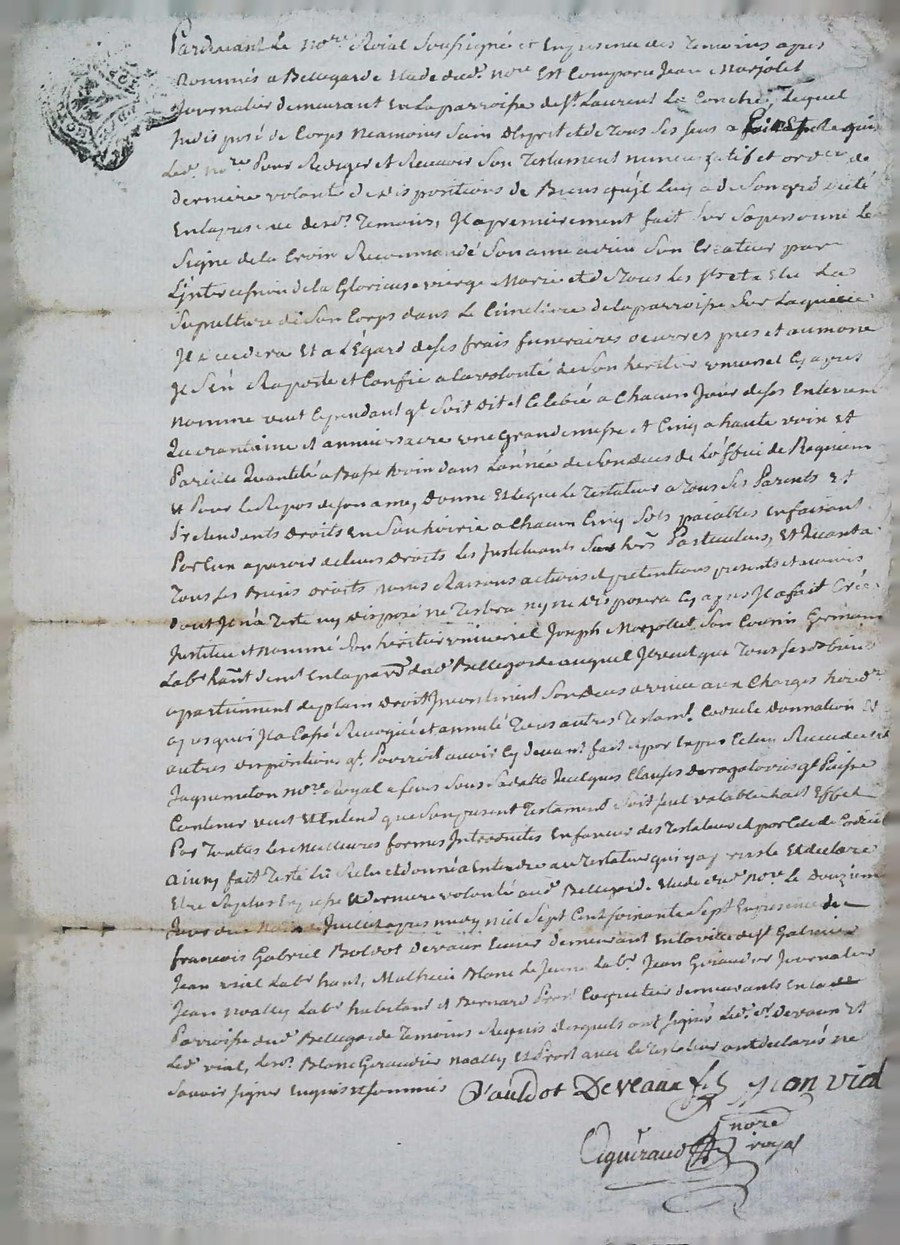 Pardevant Le nore Roial Soussigné et En presence des Temoins apres
nommés a Bellegarde Etude dud. nore Est Comparu Jean Marjolet
Journalier demeurant En La parroisse de St Laurent La Conche, Lequel
Indisposé de Corps neamoins Sain d'Esprit et de Tous Ses sens a fait
Led. nore Pour Rediger et Recevoir Son Testament nuncupatif et ordre de
derniere volonté de dispositions de Biens qu'jl Luy a de Son gré dicté
En la presence desd. Temoins, Jl a premierement fait Sur Sa personne Le
Signe de la Croix Recommandé Son ame a dieu Son Createur par
L'intercession de la Glorieuse vierge Marie et de Tous Les Sts et Elu La
Sepulture de Son Corps dans Le Cimetiere de la parroisse Sur Laquelle
Jl decedera Et a L'Egard de ses frais funeraires oeuvres pies et aumone
Jl S'en Raporte et Confie a la volonté de Son heritier universel Cy apres
nommé veut Cependant qe Soit dit et Celebré a Chacun Jour de ses Enterrement
Quarantaine et anniversaire une Grande messe et Cinq a haute voix et
Pareille Quantité a Basse voix dans L'année de Son deces de L'office de Requiem
et Pour Le Repos de son ame, Donne Et Legue Le Testateur a Tous Ses Parents et
Pretendants Droits En Son hoirie a Chacun Cinq Sols paiables En faisant
Par Eux aparoir de leurs Droits Les Jnstituants Ses hers Particuliers, Et Quant a
Tous Les Biens droits noms Raisons actions et pretentions presents et avenir
dont Jl n'a Testé ny disposé ne Testera ny ne disposera Cy apres Jl a fait Créé
Jnstitue et nommé Son heritier universel Joseph Marjollet Son Cousin Germain
Labr hant demt En La parre dud. Bellegarde auquel Jl veut que Tous Sesd. biens
apartiennent de plain droit Jncontinent Son deces arrivé aux Charges
quoi Jl a Cassé Revoqué et annulé Tous autres Testamt Codicile donnation Et
autres dispositions qe Pourroit avoir Cy devant fait et par Expres Celuy Recu de
Jaquemeton nore Royal a feurs Sous Sa datte Quelques Clauses derogatoires qe Puisse
Contenir veut Et Entend que Son present Testament Soit seul valable hait Effet
Par Toutes Les Meilleures formes Jntroduites En faveur des Testateurs et par Celle de
ainsy fait Testé Lû Relu et donné a Entendre au Testateur qui y a persisté Et declaré
Etre Sa plus Expresse Et derniere volonté aud. Bellegarde Etude dud. nore Le Douzieme
Jour de Juillet apres midy mil Sept Cent soixante Sept En presence de
françois Gabriel Boldot Devaux Ecuier demeurant En la ville de St Galmier
Jean vial Labr hant, Mathieu Blanc Le Jeune Labr Jean Giraudier Journalier
Jean noally Labr habitant et Bernard Prost demeurants En la de
Parroisse dud. Bellegarde Temoins Requis desquels ont Signé Led. Sr Devaux Et
Led. vial, Lesd. Blanc Giraudier noally Et Prost avec Le Testateur ont declarés ne
Savoir Signer Enquis et Sommés
Deveaux fils Jean vial
nore royal